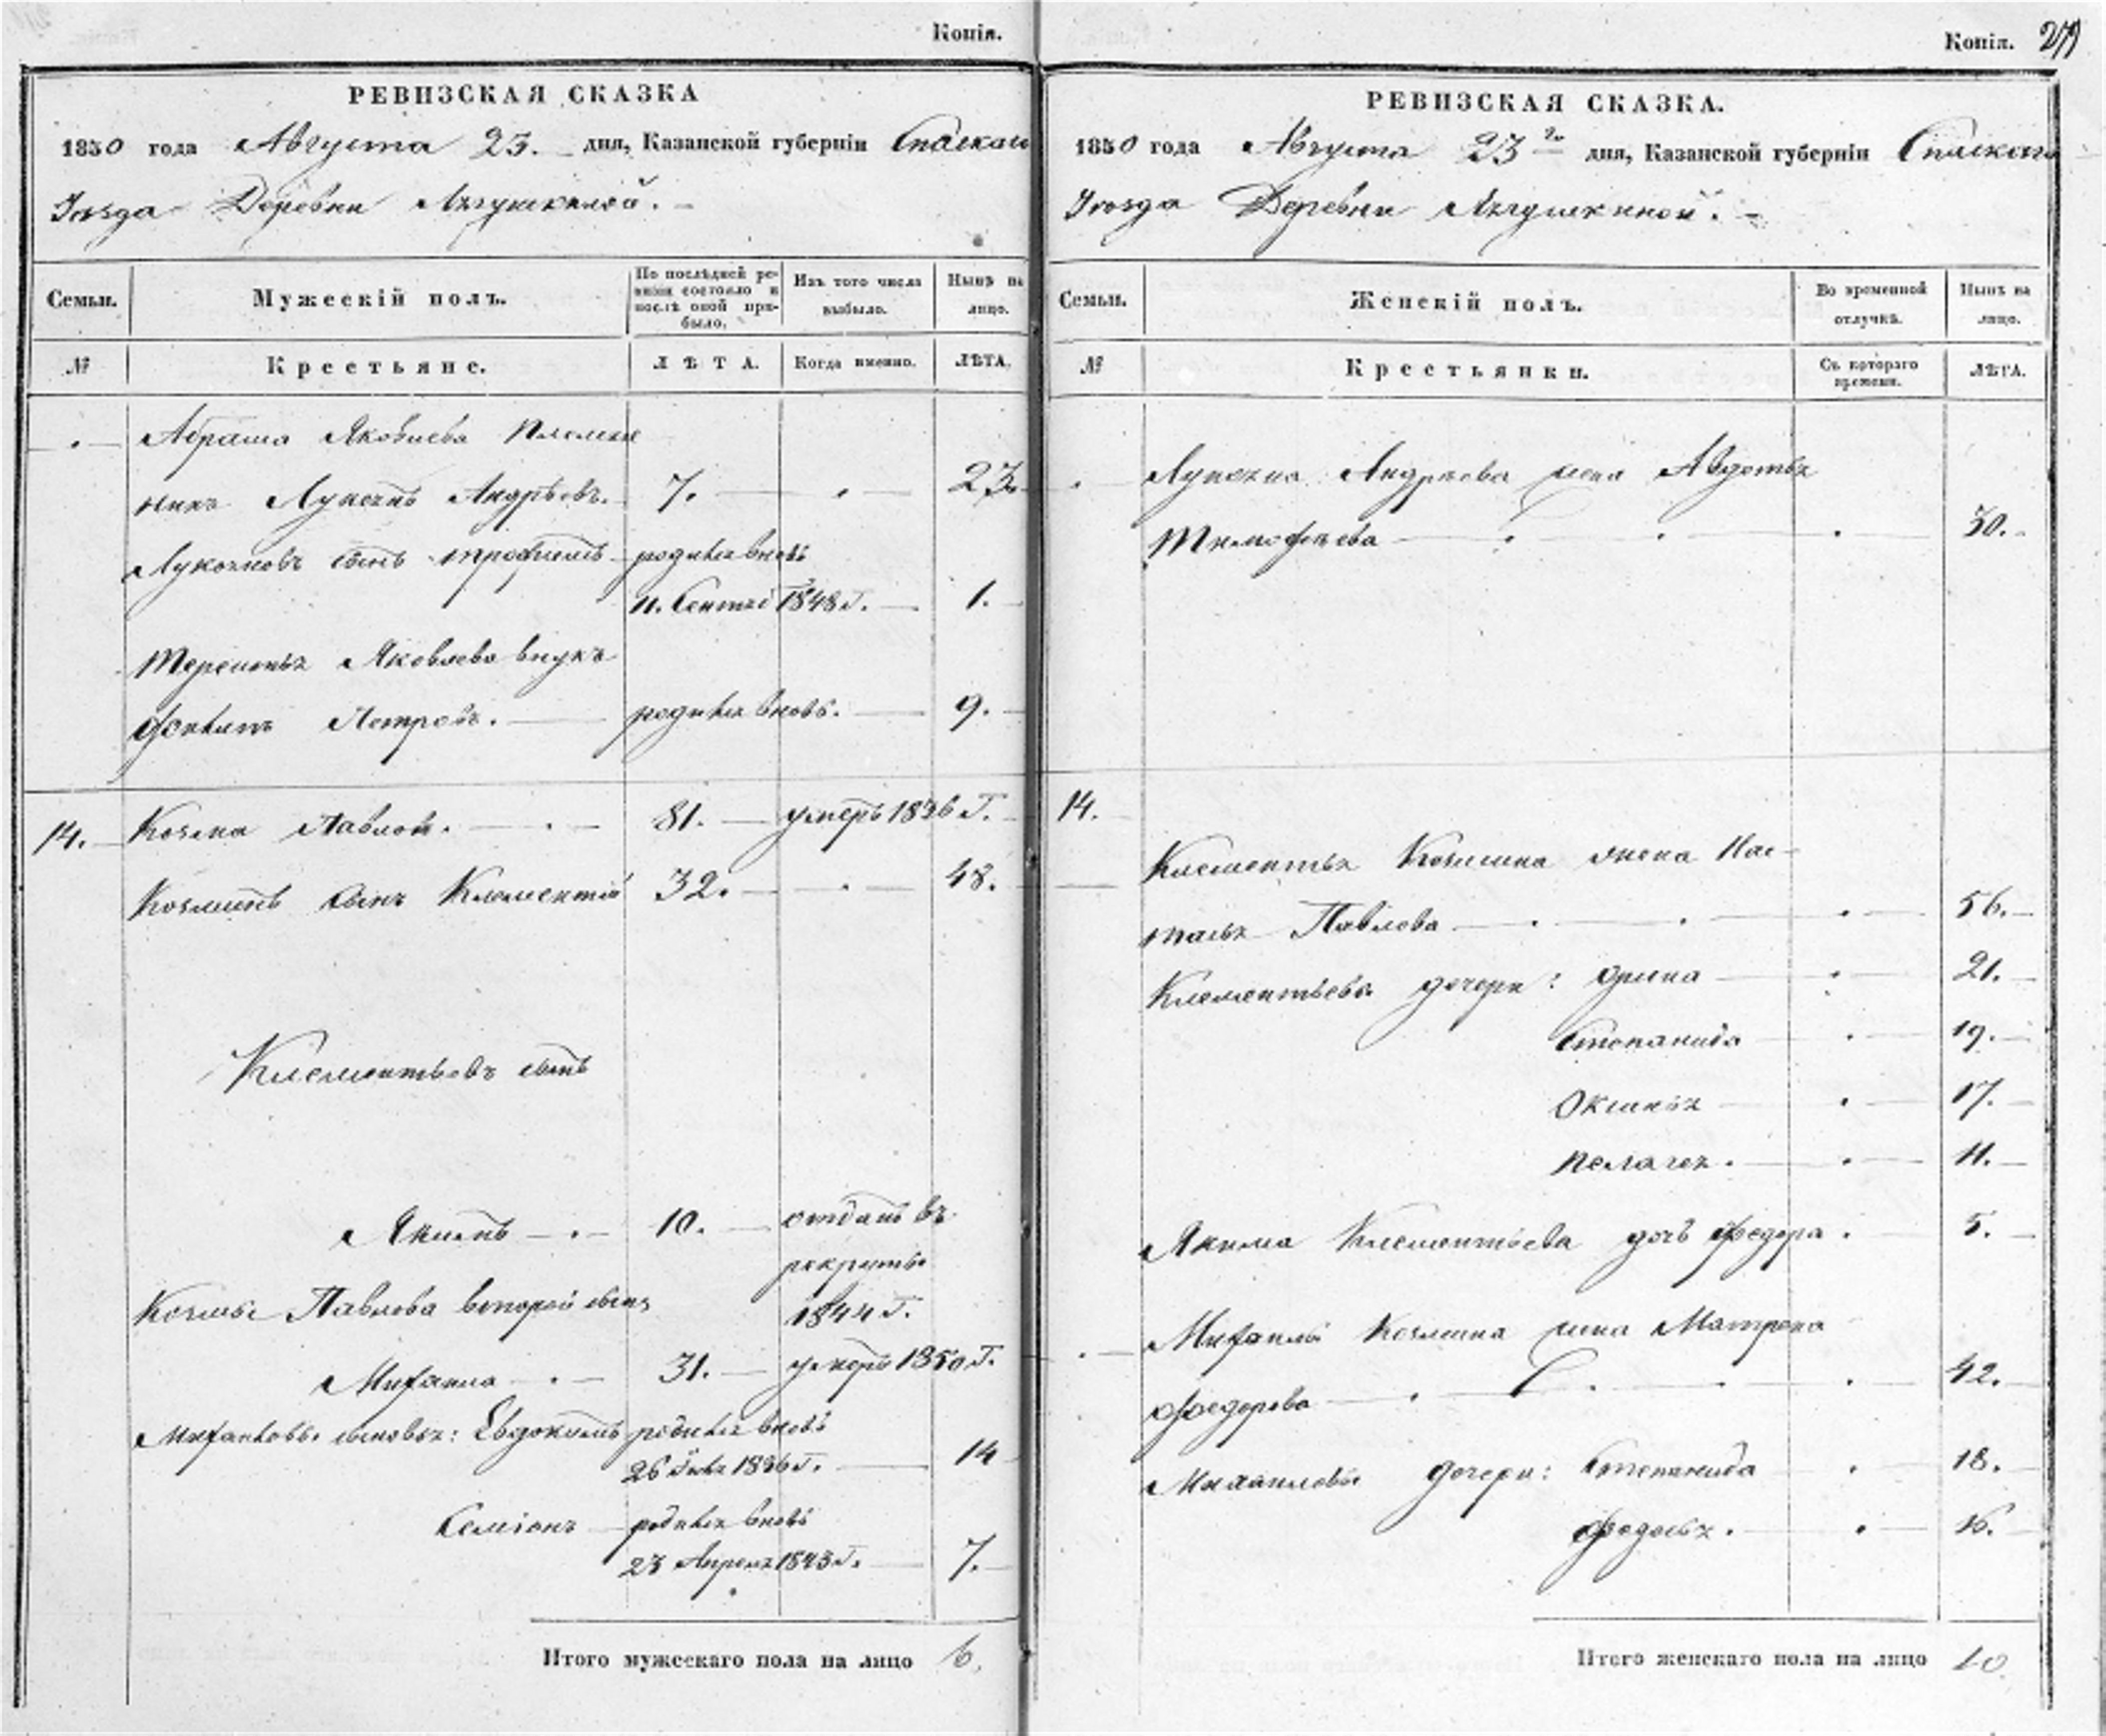 Копія.
РЕВИЗСКАЯ СКАЗКА
1850 года Августа 23. дня, Казанской губерніи Спаскаго
Уѣзда Деревни Лягушкиной.
Семьи.
Мужескій полъ.
По послѣдней ре-
визіи состояло и
послѣ оной при-
было.
Изъ того числа
выбыло.
Нынѣ на
лицо.
№
Крестьяне.
ЛѢТА.
Когда именно.
ЛѢТА.
Абрама Яковлева племян
никъ Лукоянъ Андрѣевъ. 7. 23.
Лукояновъ сынъ Трофимъ родился вновь
11. Сентяб 1848 г. 1.
Терентья Яковлева внукъ
Филипъ Петровъ. родился вновь. 9.
14. Козма Павлов. 81. умеръ 1836 г.
Козминъ сынъ Клементій 32. 48.
Клементьевъ сынъ
Якимъ 10. отданъ въ
рекруты
1844 г.
Козмы Павлова второй сынъ
Михаила 31. умеръ 1850 г.
Михайловы сыновья: Евдокимъ родился вновь
26 1836 г. 14
Семіонъ родился вновь
23 Апреля 1843 г. 7.
Итого мужескаго пола на лицо 6.
Копія. 279
РЕВИЗСКАЯ СКАЗКА.
1850 года Августа 23 го дня, Казанской губерніи Спаскаго
Уѣзда Деревни Лягушкиной.
Семьи.
Женскій полъ.
Во временной
отлучкѣ.
Нынѣ на
лицо.
№
Крестьянки.
Съ котораго
времени.
ЛѢТА.
Лукояна Андрѣева жена Авдотья
Тимофѣева 30.
14.
Клементья Козмина жена Нас-
тасья Павлова 56.
Клементьевы дочери: Орина 21.
Степанида 19.
Оксинья 17.
Пелагея. 11.
Якима Клементьева дочь Федора. 5.
Михаилы Козмина жена Матрена
Федорова 42.
Михаиловы дочери: Степанида 18.
Федосья. 16.
Итого женскаго пола на лицо 10